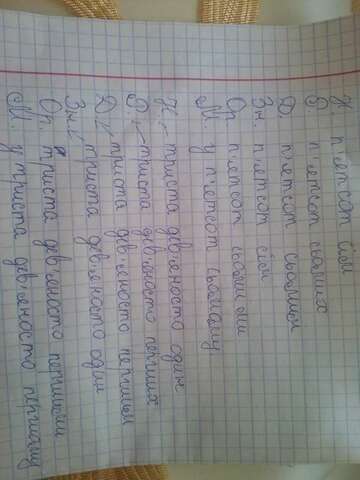 Н. п'ятсот сім
Р. п'етсот сьоміх
Д. п'етсот сьомим
Зн. п'етсот сім
Ор. п'етсот сьомими
М. у п'етсот сьомому
Н. триста дев'яносто один
Р. триста дев'яносто перших
Д. триста дев'яносто першим
Зн. триста дев'яносто один
Ор. триста дев'яносто першими
М. у триста дев'яносто першому